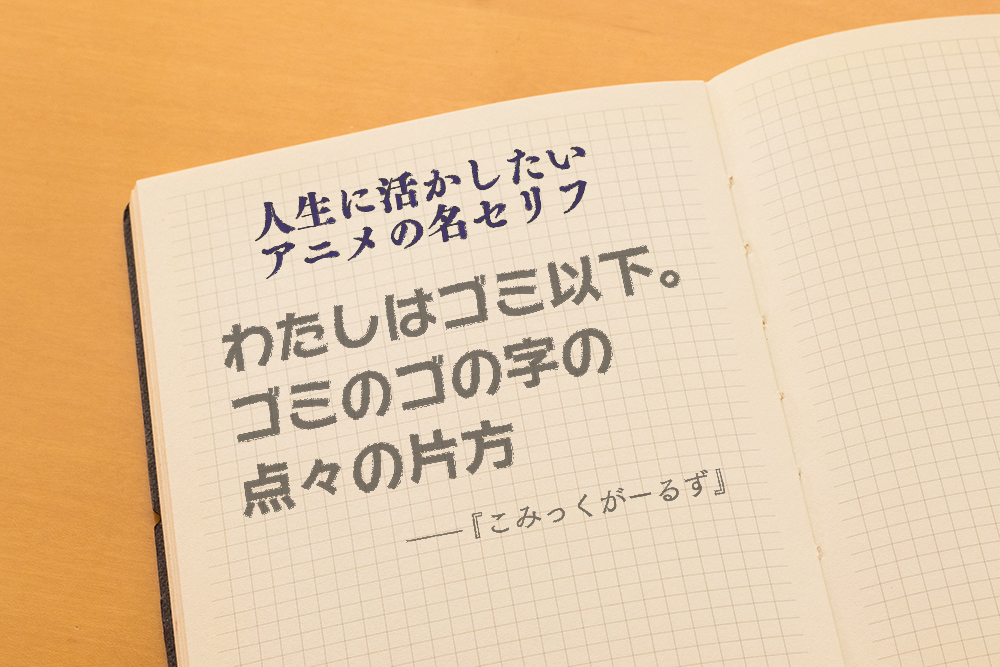 人生に活かしたい
アニメの名セリフ
わたしはゴミ以下。
ゴミのゴの字の
点々の片方
――『こみっくがーるず』